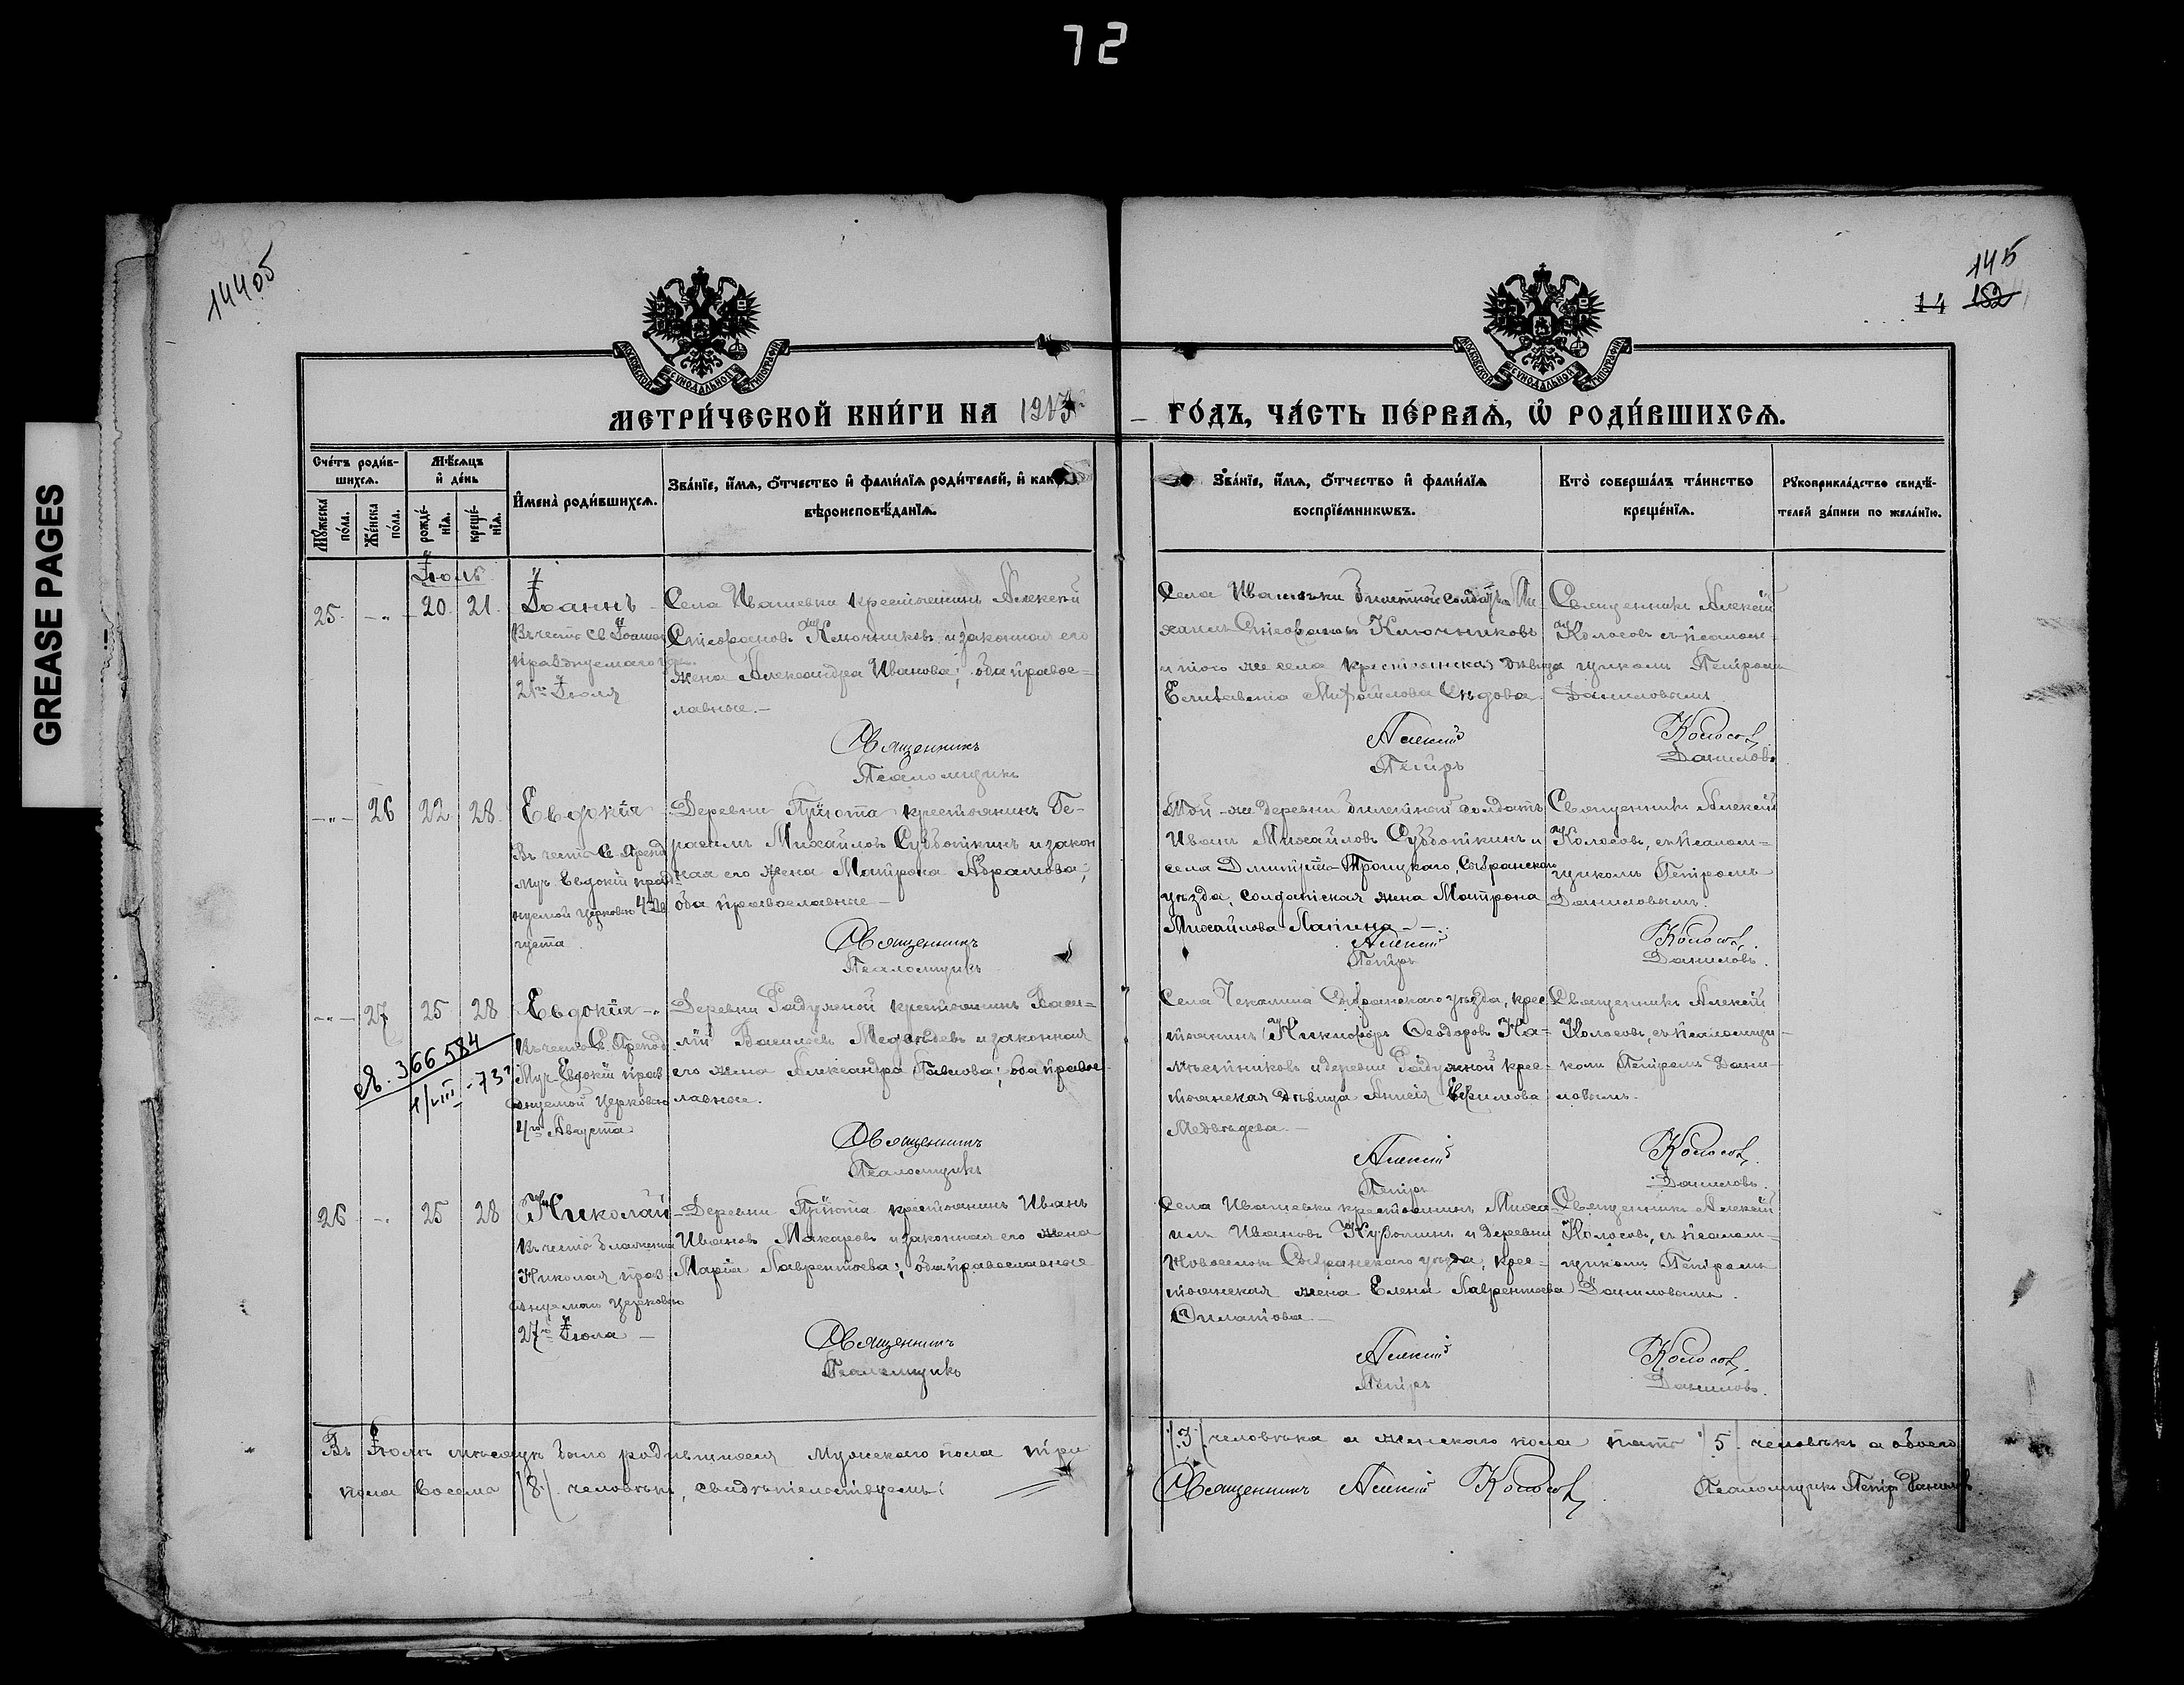 72
GREASE PAGES
14405
145
14 152
МЕТРИ́ЧЕСКОЙ КНИ́ГИ НА 1913
ГО́ДЪ, ЧА́СТЬ ПЕ́РВАѦ, Ѡ҆ РОДИ́ВШИХСѦ.
Сче́тъ роди́в-
шихсѧ.
Мѣ́сѧцъ
и҆ де́нь
Мꙋ́жеска по́ла.
Же́нска по́ла.
рожде́-
нїѧ.
креще́-
нїѧ.
И҆мена̀ роди́вшихсѧ.
Зва́нїе, и҆́мѧ, ѻ҆́тчество и҆ фами́лїѧ роди́телей, и҆
вѣроисповѣ́данїѧ.
Зва́нїе, и҆́мѧ, ѻ҆́тчество и҆ фами́лїѧ
воспрїе́мникѡвъ.
Кто̀ соверша́лъ та́инство
креще́нїѧ.
Рꙋкоприкла́дство свидѣ́-
телей за́писи по жела́нїю.
Іюль
25. -„- 20. 21.
Іоаннъ
Въ честь св Іоанна
празднуемаго
21го Іюля
Села Ивашевки крестьянинъ Алексѣй
Стефановъ Ключниковъ и законная его
жена Александра Ивановна; оба правос=
лавные.-
Священникъ
Псаломщикъ
Села Ивашевки билетной солдатъ Ми-
хаилъ Стефановъ Ключниковъ
и того же села крестьянская дѣвица
Елисавета Митрофилова Сѣдова
Алексій
Петръ
Священникъ Алексій
Колосовъ съ псалом-
щикомъ Петромъ
Даниловымъ
Колосовъ
Даниловъ
-„- 26 22. 28.
Евдокія
Въ честь Св Препод
муч Евдокіи празд
нуемой церковью 4го Ав
густа.
Деревни Пустота крестьянинъ Ге-
расимъ Михайловъ Субботкинъ и закон
ная его жена Матрона Абрамова;
оба православные -
Священникъ
Псаломщикъ
Той-же деревни билетной солдатъ
Иванъ Михайловъ Субботкинъ и
села Дмитріево-Троицкаго, Сызранскаго
уѣзда, солдатская жена Матрона
Михайлова Лапина - -
Алексій
Петръ
Священникъ Алексій
Колосовъ, съ псалом=
щикомъ Петромъ
Даниловымъ.
Колосовъ.
Даниловъ.
-„- 27 25 28
366584
1/VIII-73г
Евдокія -„
Въ честь Св Препод
Муч Евдокіи праз
днуемой церковью
4го Августа
Деревни Радужной крестьянинъ Васи=
лій Васильевъ Медвѣдевъ и законная
его жена Александра Павлова; оба правос
лавные.
Священникъ
Псаломщикъ
Села Чекалина Сызранскаго уѣзда, крес
тьянинъ Никифоръ Ѳеодоровъ На=
мѣстниковъ и деревни Радужной крес-
тьянская дѣвица Анисія Ефимова
Медвѣдева. -
Алексій
Петръ
Священникъ Алексій
Колосовъ, съ псаломщи-
комъ Петромъ Дани-
ловымъ.
Колосовъ.
Даниловъ.
26 -„ 25 28
Николай
Въ честь блаженна
Николая праз-
днуемаго церковью
27го Іюля -
Деревни Пустота крестьянинъ Иванъ
Ивановъ Макаровъ и законная его жена
Марія Лаврентьева; оба православные
Священникъ
Псаломщикъ
Села Ивашевки крестьянинъ Миха-
илъ Ивановъ и деревни
Новоселокъ Сызранскаго уѣзда, крес-
тьянская жена Елена Лаврентьева
Филатова -
Алексій
Петръ
Священникъ Алексій
Колосовъ, съ псалом=
щикомъ Петромъ
Даниловымъ.
Колосовъ.
Даниловъ.
Въ Іюлѣ мѣсяцѣ было родившихся мужескаго пола три /3/ человѣка а женскаго пола пять /5/ человѣкъ а обоего
пола восемь /8/ человѣкъ, свидѣтельствуемъ: Священникъ Алексій Колосовъ. Псаломщикъ Петръ Даниловъ.